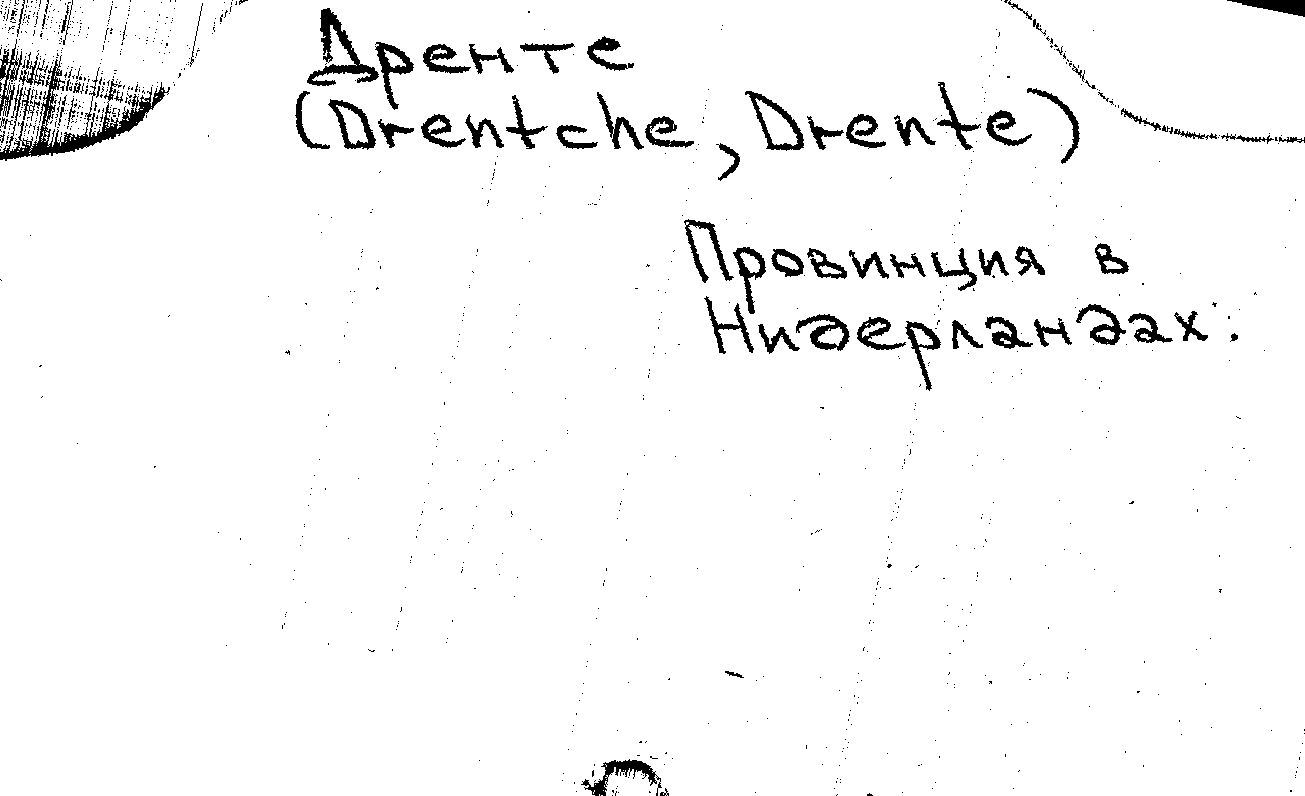 Дренте
(Drentche, Drente)
Провинция в
Нидерландах.